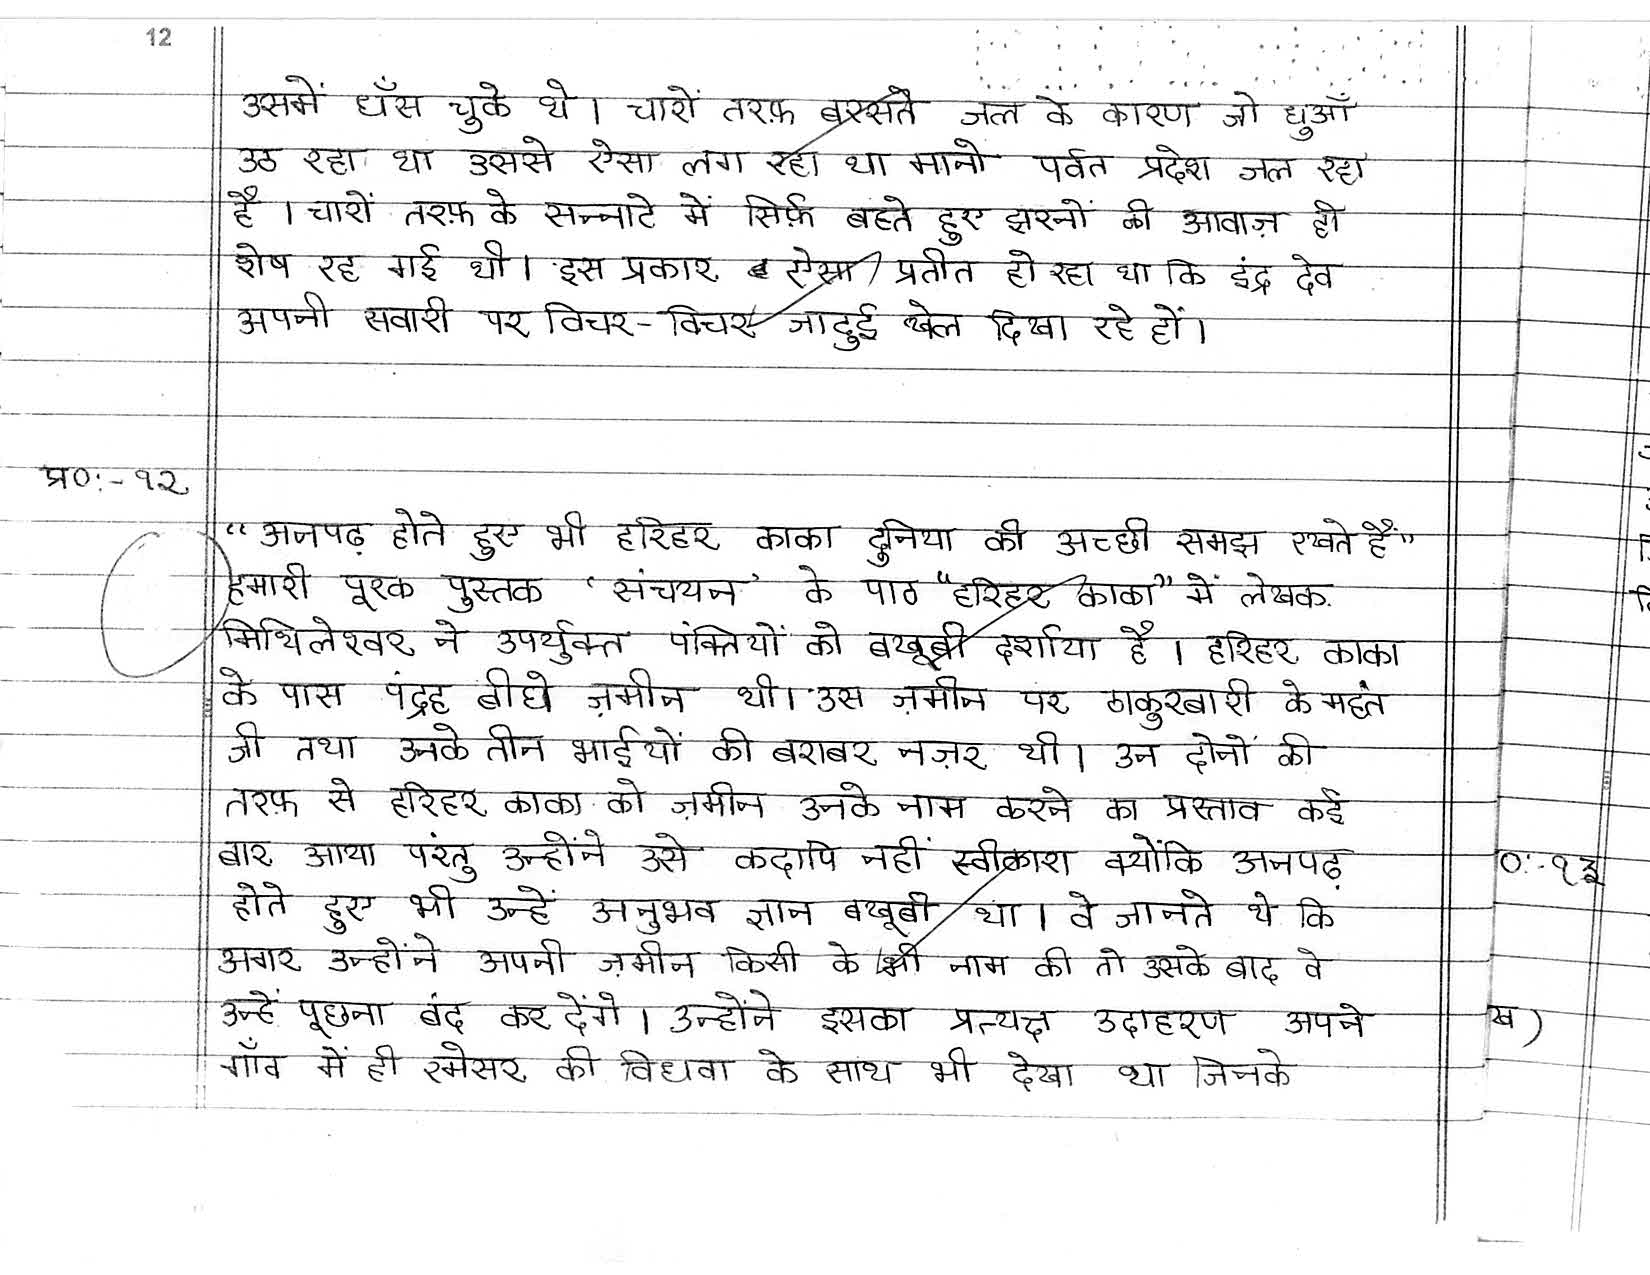 12
उसमें धँस चुके थे। चारों तरफ़ बरसते जल के कारण जो धुआँ
उठ रहा था उससे ऐसा लग रहा था मानो पर्वत प्रदेश जल रहा
है। चारों तरफ़ के सन्नाटे में सिर्फ़ बहते हुए झरनों की आवाज़ ही
शेष रह गई थी। इस प्रकार ऐसा प्रतीत हो रहा था कि इंद्र देव
अपनी सवारी पर विचर-विचर जादुई खेल दिखा रहे हों।
प्र०:-१२
“अनपढ़ होते हुए भी हरिहर काका दुनिया की अच्छी समझ रखते हैं”
हमारी पूरक पुस्तक ‘संचयन’ के पाठ “हरिहर काका” में लेखक
मिथिलेश्वर ने उपर्युक्त पंक्तियों को बखूबी दर्शाया है। हरिहर काका
के पास पंद्रह बीघे ज़मीन थी। उस ज़मीन पर ठाकुरबारी के महंत
जी तथा उनके तीन भाईयों की बराबर नज़र थी। उन दोनों की
तरफ़ से हरिहर काका को ज़मीन उनके नाम करने का प्रस्ताव कई
बार आया परंतु उन्होंने उसे कदापि नहीं स्वीकारा क्योंकि अनपढ़
होते हुए भी उन्हें अनुभव ज्ञान बखूबी था। वे जानते थे कि
अगर उन्होंने अपनी ज़मीन किसी के भी नाम की तो उसके बाद वे
उन्हें पूछना बंद कर देंगे। उन्होंने इसका प्रत्यक्ष उदाहरण अपने
गाँव में ही रमेसर की विधवा के साथ भी देखा था जिनके
०:-१३
ख)